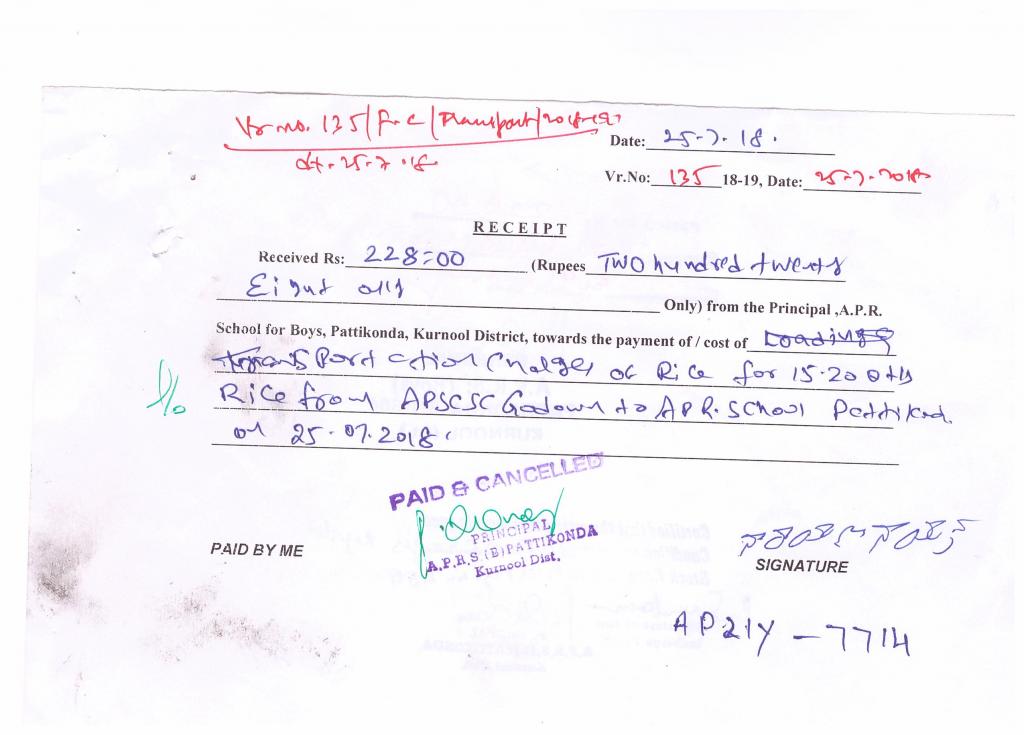 Vr no. 135/F.C/Transport/2018-19
dt. 25-7-18
Date: 25-7-18.
Vr.No: 135 18-19, Date: 25-7-2018
RECEIPT
Received Rs: 228=00 (Rupees Two hundred twenty
Eight only Only) from the Principal ,A.P.R.
School for Boys, Pattikonda, Kurnool District, towards the payment of / cost of Loading
Transport ation Chalges of Rice for 15.20 Qtls
Rice from APSCSC Godown to A.P.R. School Pattikod.
on 25.07.2018.
PAID & CANCELLED
PRINCIPAL
A.P.R.S (B) PATTIKONDA
Kurnool Dist.
PAID BY ME
SIGNATURE
AP21Y - 7714